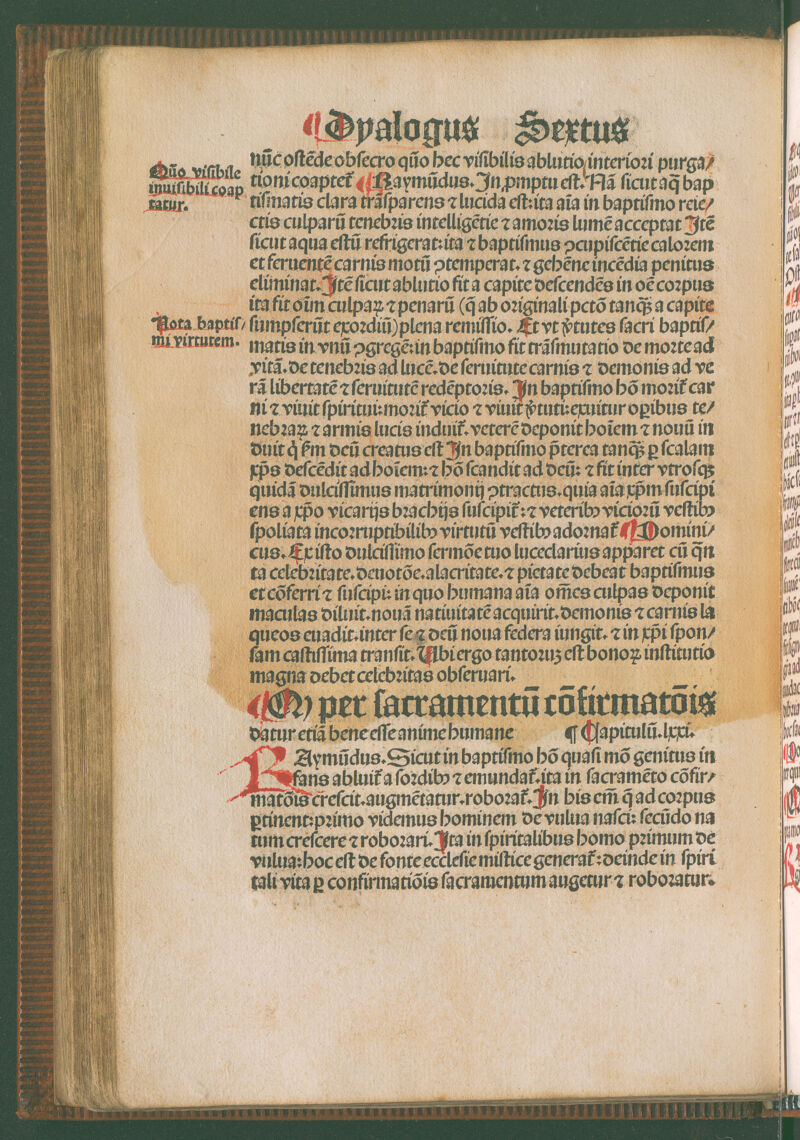 ¶ Dyalogus Sextus
Quō visibile
inuisibili coap
tatur.
nūc ostēde obsecro qūo hec visibilis ablutio interiori purga/
tioni coaptet᷑ ¶ Raymūdus. In ꝓmptu est. Nā sicut aq̄ bap
tismatis clara trāsparens ⁊ lucida est: ita aīa in baptismo reie/
ctis culparū tenebris intelligētie ⁊ amoris lumē acceptat Itē
sicut aqua estū refrigerat: ita ⁊ baptismus ꝯcupiscētie calorem
et feruentē carnis motū ꝯtemperat. ⁊ gehēne incēdia penitus
eliminat. Itē sicut ablutio fit a capite descendēs in oē corpus
ita fit oīm culpaꝝ ⁊ penarū (q̄ ab originali pctō tanqꝫ a capite
Nota baptis/
mi virtutem.
sumpserūt exordiū) plena remissio. Et vt v̓tutes sacri baptis/
matis in vnū ꝯgregē: in baptismo fit trāsmutatio de morte ad
vitā. de tenebris ad lucē. de seruitute carnis ⁊ demonis ad ve
rā libertatē ⁊ seruitutē redēptoris. In baptismo hō morit᷑ car
ni ⁊ viuit spiritui: morit᷑ vicio ⁊ viuit v̓tuti: exuitur oꝑibus te/
nebraꝝ ⁊ armis lucis induit᷑. veterē deponit hoīem ⁊ nouū in
duit q̇ ẜm deū creatus est In baptismo p̄terea tanqꝫ ꝑ scalam
xp̄s descēdit ad hoīem: ⁊ hō scandit ad deū: ⁊ fit inter vtrosqꝫ
quidā dulcissimus matrimonij ꝯtractus. quia aīa xp̄m suscipi
ens a xp̄o vicarijs brachijs suscipit᷑: ⁊ veteribꝰ viciorū vestibꝰ
spoliata incorruptibilibꝰ virtutū vestibꝰ adornat᷑ ¶ Domini/
cus. Ex isto dulcissimo sermōe tuo luceclarius apparet cū q̄n
ta celebritate. deuotōe. alacritate. ⁊ pietate debeat baptismus
et cōferri ⁊ suscipi: in quo humana aīa om̄es culpas deponit
maculas diluit. nouā natiuitatē acquirit. demonis ⁊ carnis la
queos euadit. inter se ⁊ deū noua federa iungit. ⁊ in xp̄i spon/
sam castissima transit. Ubi ergo tantoruꝫ est bonoꝝ institutio
magna debet celebritas obseruari.
¶ Q per sacramentū cōfirmatōis
datur etiā bene esse anime humane ¶ Capitulū. lxxi.
RAymūdus. Sicut in baptismo hō quasi mō genitus in
fans abluit᷑ a sordibꝰ ⁊ emundat᷑. ita in sacramēto cōfir/
matōis crescit. augmētatur. roborat᷑. In his em̄ q̄ ad corpus
ꝑtinent: primo videmus hominem de vulua nasci: secūdo na
tum crescere ⁊ roborari. Ita in spiritalibus homo primum de
vulua: hoc est de fonte ecclesie mistice generat᷑: deinde in spiri
tali vita ꝑ confirmatiōis sacramentum augetur ⁊ roboratur.